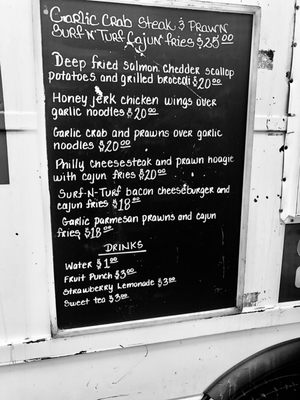 Garlic Crab Steak & Prawn
Surf-N-Turf Cajun fries $25.00
Deep fried salmon chedder scallop
potatoes and grilled brocoli $20.00
Honey jerk chicken wings over
garlic noodles $20.00
Garlic crab and prawns over garlic
noodles $20.00
Philly cheesesteak and prawn hoagie
with cajun fries $20.00
Surf-N-Turf bacon cheeseburger and
cajun fries $18.00
Garlic parmesan prawns and cajun
fries $18.00
DRINKS
Water $1.00
Fruit Punch $3.00
Strawberry Lemonade $3.00
Sweet tea $3.00